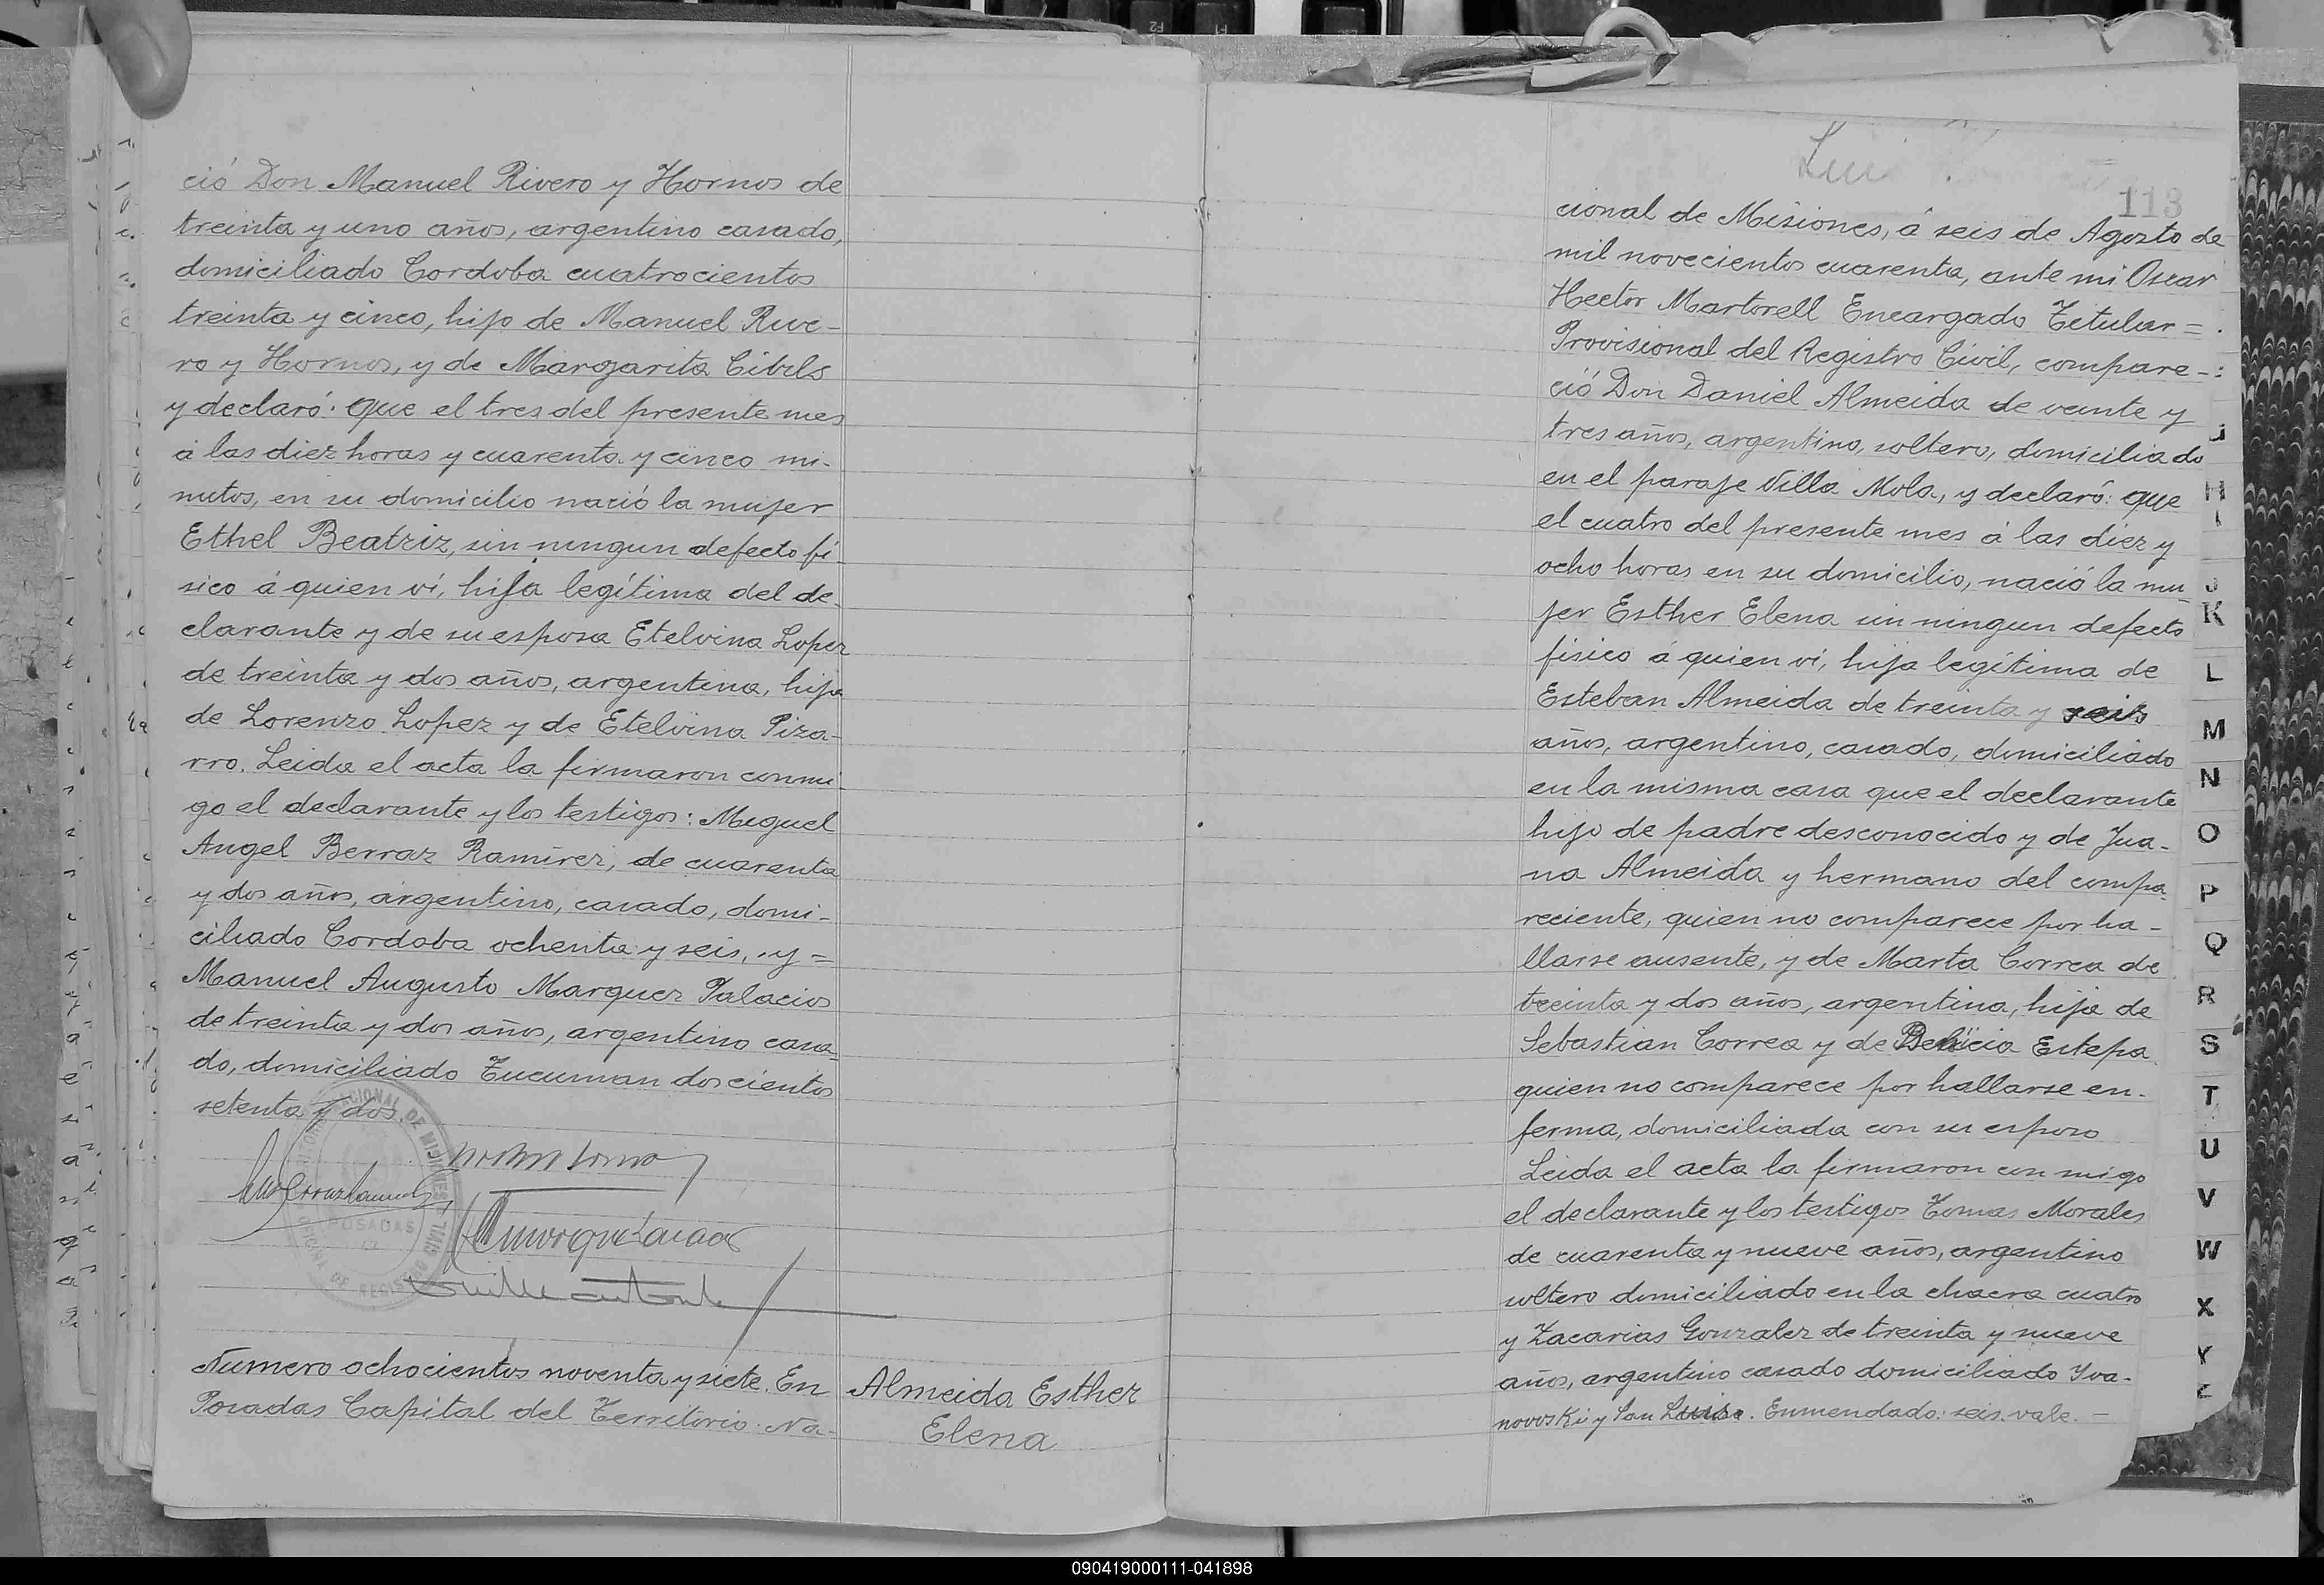 ció Don Manuel Rivero y Hornos de
treinta y uno años, argentino casado,
domiciliado Cordoba cuatrocientos
treinta y cinco, hijo de Manuel Rive-
ro y Hornos, y de Margarita Cibils
y declaró: que el tres del presente mes
á las diez horas y cuarenta y cinco mi-
nutos, en su domicilio nació la mujer
Ethel Beatriz, sin ningun defecto fi-
sico á quien ví, hija legítima del de-
clarante y de su esposa Etelvina Lopez
de treinta y dos años, argentina, hija
de Lorenzo Lopez y de Etelvina Piza-
rro. Leida el acta la firmaron conmi-
go el declarante y los testigos: Miguel
Angel Berraz Ramírez, de cuarenta
y dos años, argentino, casado, domi-
ciliado Cordoba ochenta y seis, y =
Manuel Augusto Marquez Palacios
de treinta y dos años, argentino casa-
do, domiciliado Tucuman doscientos
setenta y dos.
POSADAS
Numero ochocientos noventa y siete. En
Posadas Capital del Territorio Na-
Almeida Esther
Elena
Luis
113
cional de Misiones, á seis de Agosto de
mil novecientos cuarenta, ante mi Oscar
Hector Martorell Encargado Titular =
Provisional del Registro Civil, compare-
ció Don Daniel Almeida de veinte y
tres años, argentino, soltero, domiciliado
en el paraje Villa Mola, y declaró: que
el cuatro del presente mes á las diez y
ocho horas en su domicilio, nació la mu-
jer Esther Elena sin ningun defecto
fisico á quien ví, hija legítima de
Esteban Almeida de treinta y seis
años, argentino, casado, domiciliado
en la misma casa que el declarante
hijo de padre desconocido y de Jua-
na Almeida y hermano del compa-
reciente, quien no comparece por ha-
llarse ausente, y de Marta Correa de
treinta y dos años, argentina, hija de
Sebastian Correa y de Estepa
quien no comparece por hallarse en-
ferma, domiciliada con su esposo
Leida el acta la firmaron con migo
el declarante y los testigos Tomas Morales
de cuarenta y nueve años, argentino
soltero domiciliado en la chacra cuatro
y Zacarias Gonzalez de treinta y nueve
años, argentino casado domiciliado Iva-
novoski y San Luis. Enmendado: seis. vale. -
H
I
J
K
L
M
N
O
P
Q
R
S
T
U
V
W
X
Y
Z
090419000111-041898